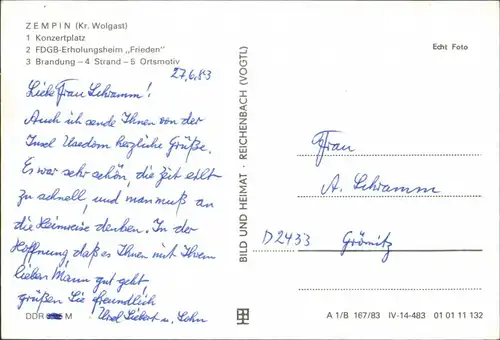 ZEMPIN (Kr. Wolgast)
1 Konzertplatz
2 FDGB-Erholungsheim „Frieden"
3 Brandung – 4 Strand – 5 Ortsmotiv
27.6.83
Liebe Frau Schramm!
Auch ich sende Ihnen von der
Insel Usedom herzliche Grüße.
Es war sehr schön, die Zeit eilt
zu schnell, und man muß an
die Heimreise denken. In der
Hoffnung, daß es Ihnen mit Ihrem
lieben Mann gut geht
grüßen Sie freundlich
Ursel Siebert u. Sohn
DDR M
BILD UND HEIMAT · REICHENBACH (VOGTL)
Echt Foto
Frau
A. Schramm
D2433 Grömitz
A 1/B 167/83 IV-14-483 01 01 11 132